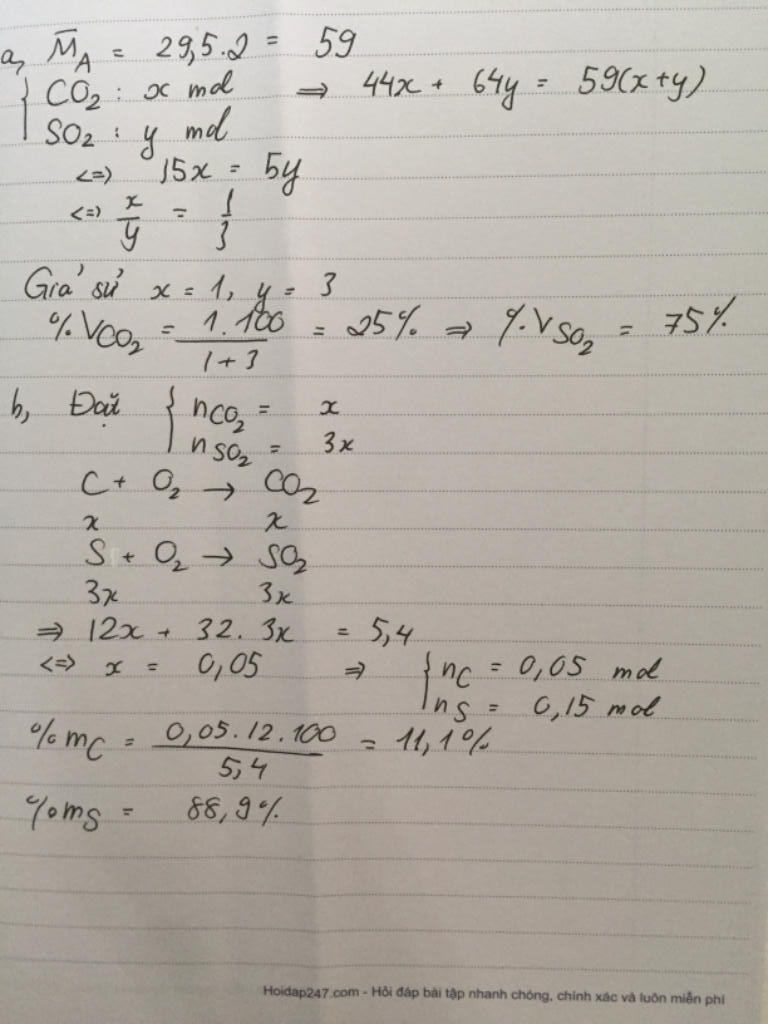 a, M̅A = 29,5.2 = 59
{ CO₂ : x mol ⇒ 44x + 64y = 59(x+y)
SO₂ : y mol
<=> 15x = 5y
<=> x/y = 1/3
Giả sử x = 1, y = 3
%VCO₂ = 1.100/(1+3) = 25% ⇒ %VSO₂ = 75%
b, Đặt { nCO₂ = x
nSO₂ = 3x
C + O₂ → CO₂
x x
S + O₂ → SO₂
3x 3x
⇒ 12x + 32. 3x = 5,4
<=> x = 0,05 ⇒ { nC = 0,05 mol
nS = 0,15 mol
%mC = 0,05.12.100/5,4 = 11,1%
%mS = 88,9%
Hoidap247.com - Hỏi đáp bài tập nhanh chóng, chính xác và luôn miễn phí